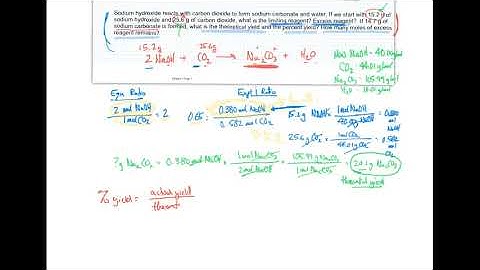 Sodium hydroxide reacts with carbon dioxide to form sodium carbonate and water. If we start with 15.2 g of
sodium hydroxide and 25.6 g of carbon dioxide, what is the limiting reagent? Excess reagent? If 14.7 g of
sodium carbonate is formed, what is the theoretical yield and the percent yield? How many moles of excess
reagent remains?
15.2g 25.6g
2 NaOH + CO₂ → Na₂CO₃ + H₂O
NaOH = 40.00 g/mol
CO₂ = 44.01 g/mol
Na₂CO₃ = 105.99 g/mol
H₂O = 18.01 g/mol
Eqn Ratio
2 mol NaOH / 1 mol CO₂ = 2
Exptl Ratio
0.65 = 0.380 mol NaOH / 0.582 mol CO₂
15.2g NaOH × 1 mol NaOH / 40.00g NaOH = 0.380 mol NaOH
25.6g CO₂ × 1 mol CO₂ / 44.01g CO₂ = 0.582 mol CO₂
?g Na₂CO₃ = 0.380 mol NaOH × 1 mol Na₂CO₃ / 2 mol NaOH × 105.99g Na₂CO₃ / 1 mol Na₂CO₃ = 20.1g Na₂CO₃
theoretical yield
% yield = actual yield / theoret